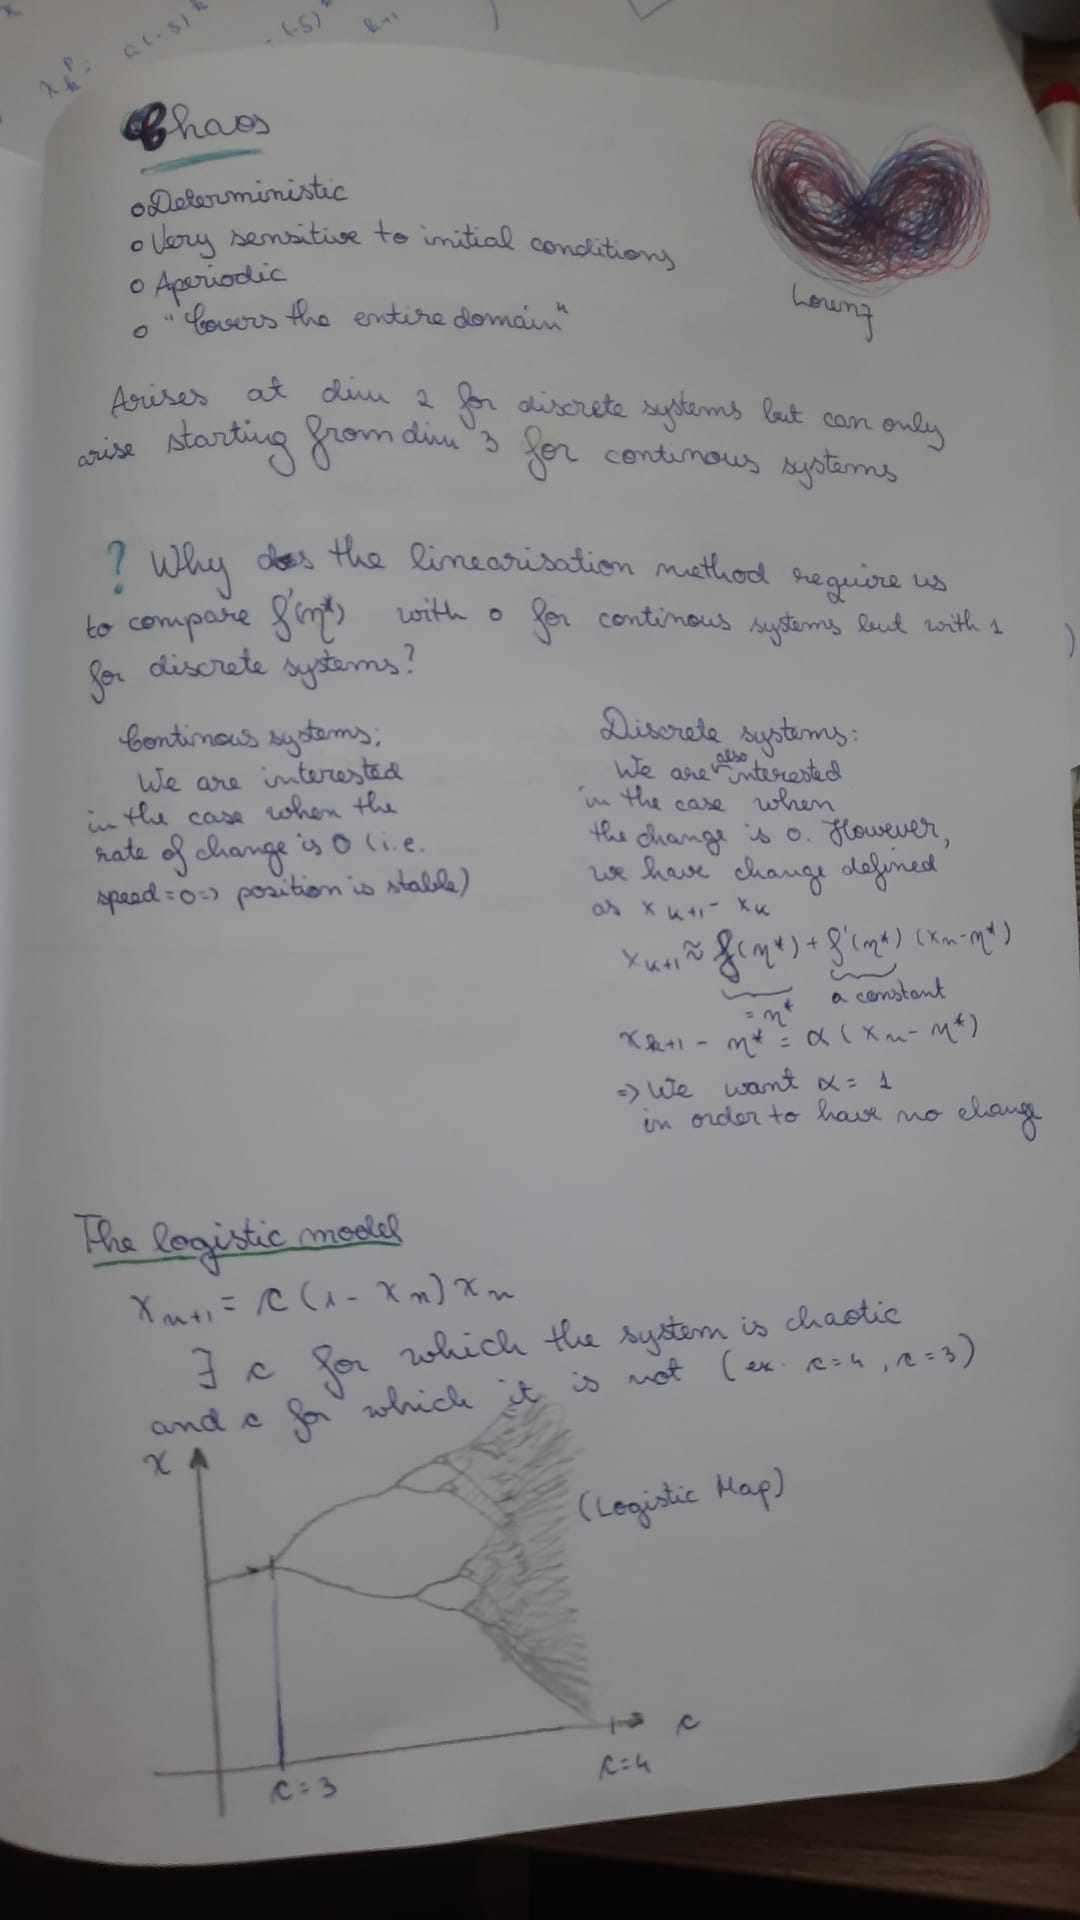 Chaos
o Deterministic
o Very sensitive to initial conditions
o Aperiodic
o "Covers the entire domain"
Lorenz
Arises at dim 2 for discrete systems but can only
arise starting from dim 3 for continous systems
? Why does the linearisation method require us
to compare f'(η*) with 0 for continous systems but with 1
for discrete systems?
Continous systems:
We are interested
in the case when the
rate of change is 0 (i.e.
speed = 0 => position is stable)
Discrete systems:
We are also interested
in the case when
the change is 0. However,
we have change defined
as x k+1 - xk
xk+1 ≈ f(η*) + f'(η*) (xk - η*)
= η*
a constant
xk+1 - η* = α (xk - η*)
=> We want α = 1
in order to have no change
The logistic model
xn+1 = r (1 - xn) xn
∃ r for which the system is chaotic
and r for which it is not (ex. r=4, r=3)
x
(Logistic Map)
r
r=3
r=4